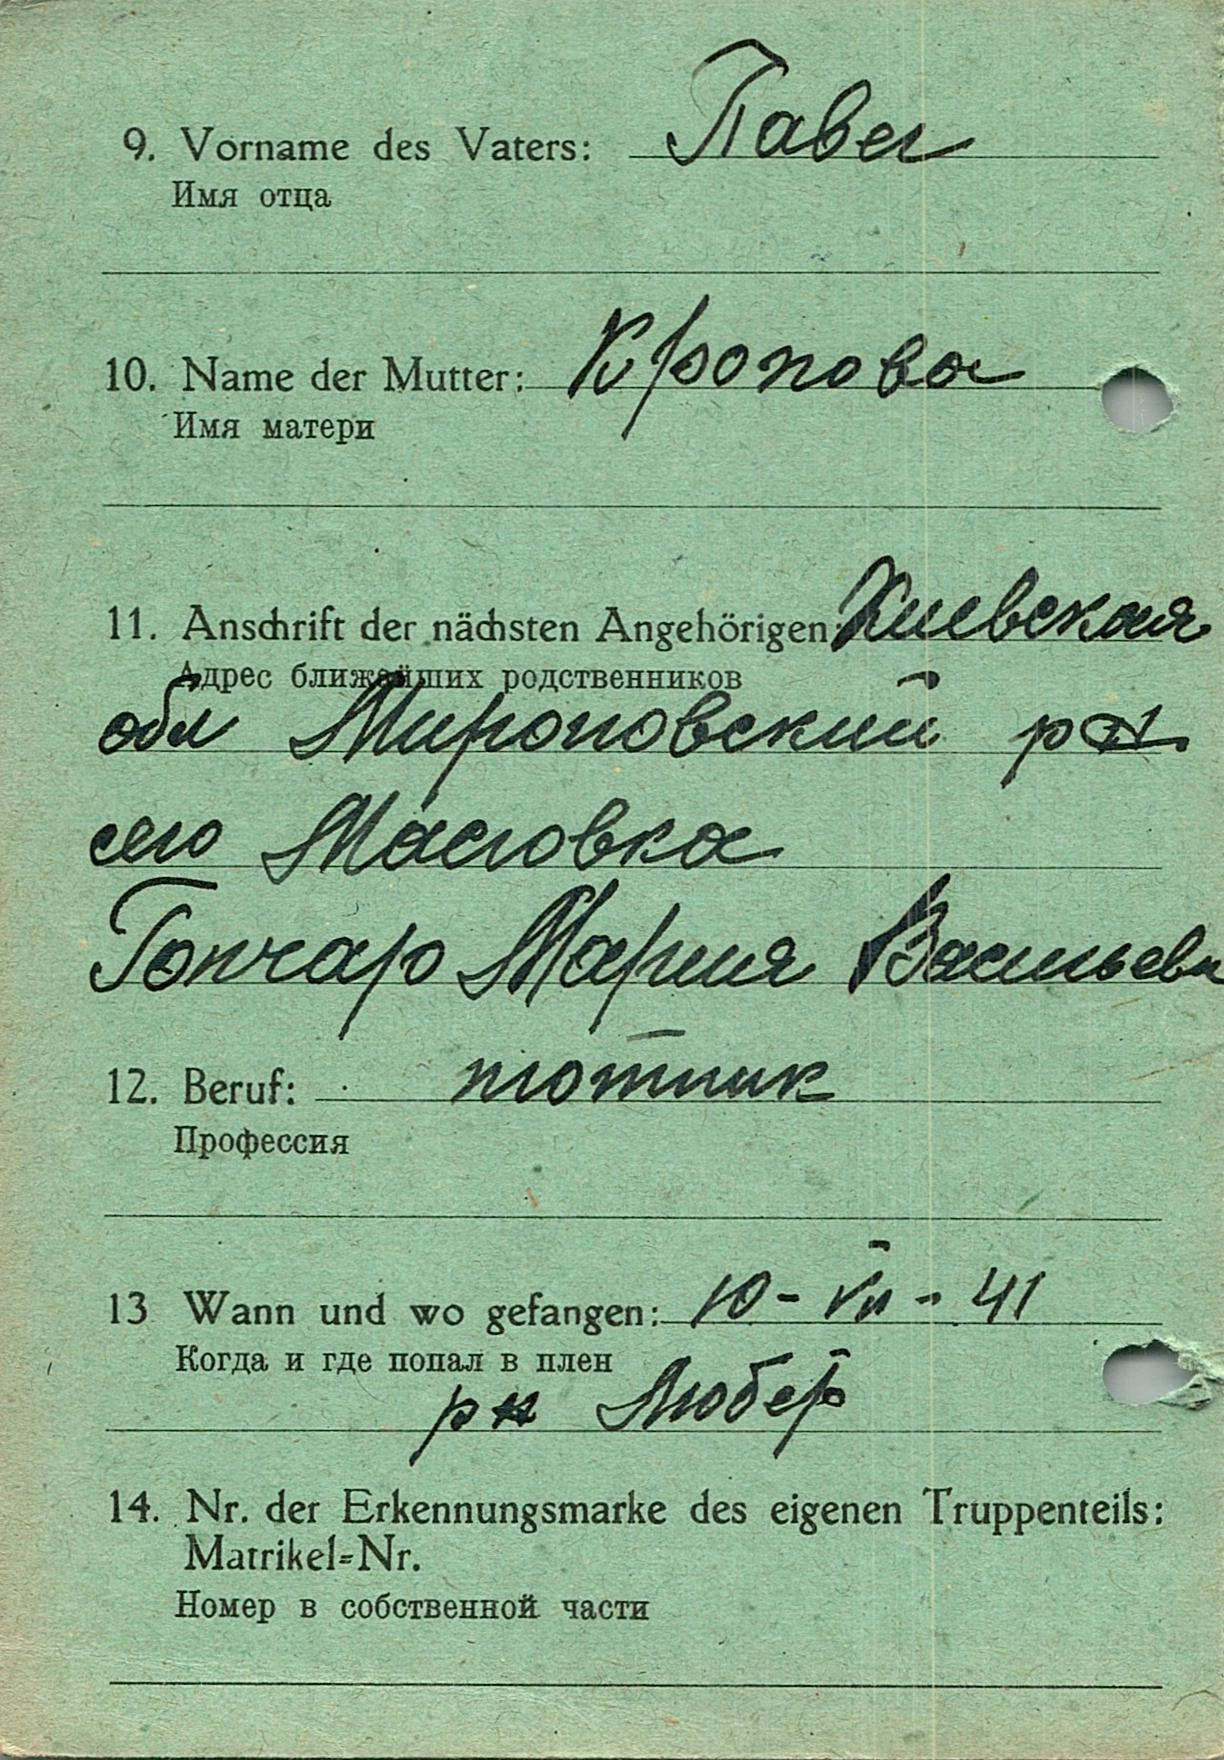 9. Vorname des Vaters: Павел
Имя отца
10. Name der Mutter: Кропова
Имя матери
11. Anschrift der nächsten Angehörigen: Киевская
Адрес ближайших родственников
обл Мироновский рн
село Масловка
Гончар Мария Васильевн
12. Beruf: плотник
Профессия
13 Wann und wo gefangen: 10-VII-41
Когда и где попал в плен
рн Любер
14. Nr. der Erkennungsmarke des eigenen Truppenteils:
Matrikel=Nr.
Номер в собственной части